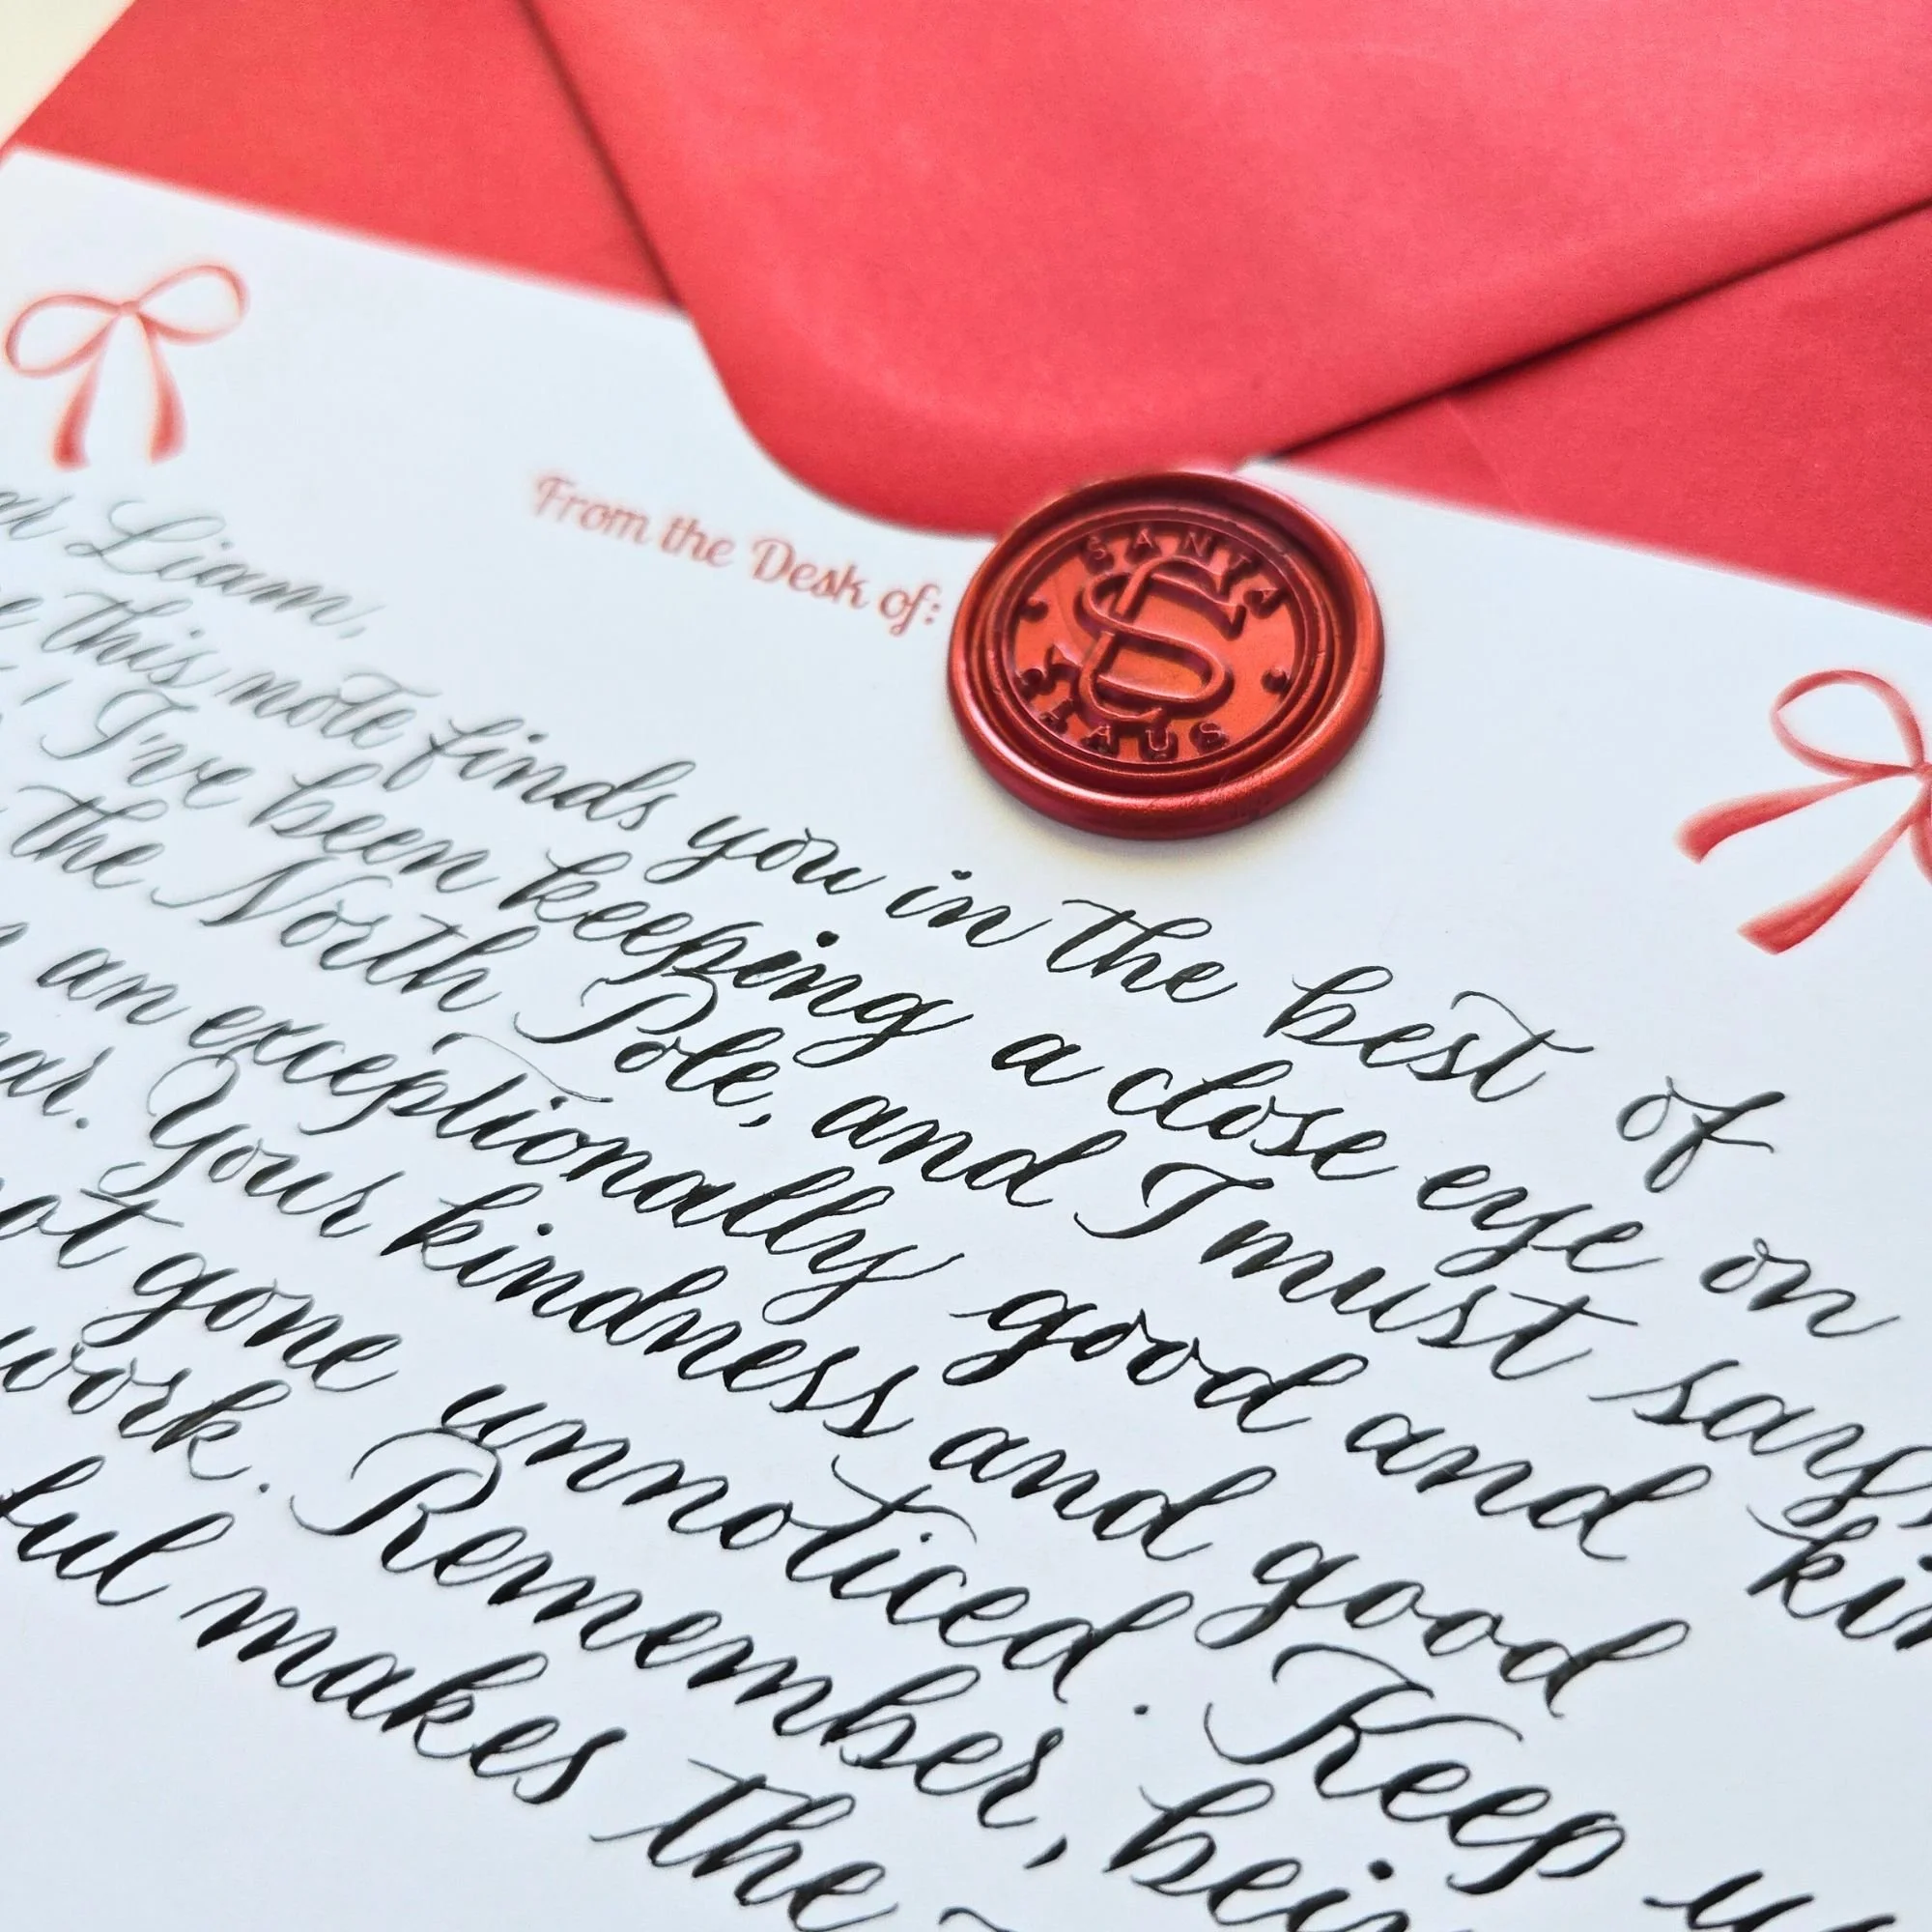 From the Desk of:
SANTA
SC
CLAUS
Liam,
this note finds you in the best of
I've been keeping a close eye on
the North Pole, and I must say,
an exceptionally good and
Your kindness and good
not gone unnoticed. Keep
work. Remember,
makes the